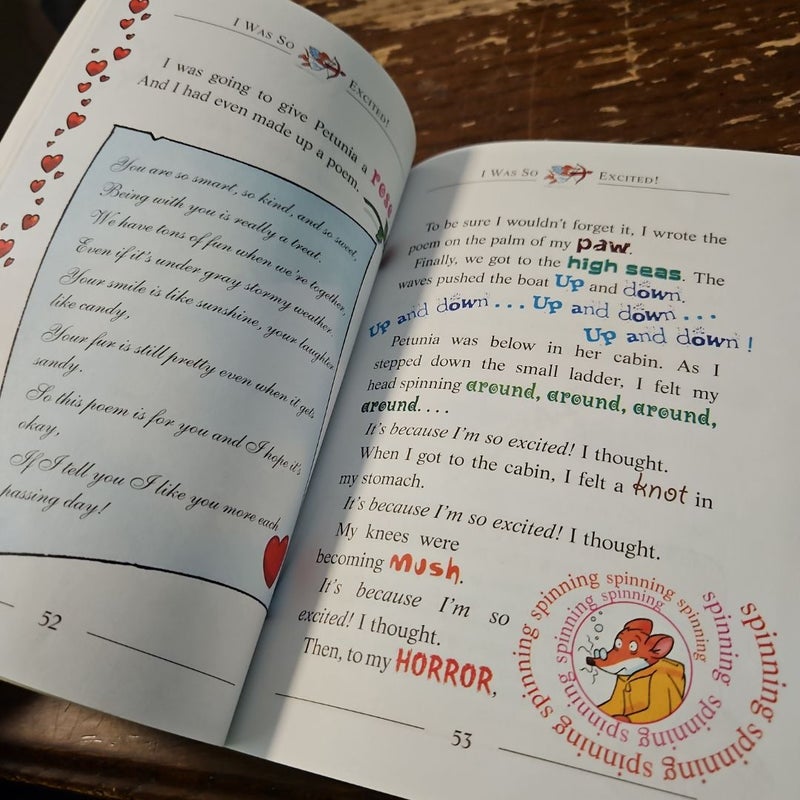 I WAS SO EXCITED!
I was going to give Petunia a rose
And I had even made up a poem.
You are so smart, so kind, and so sweet,
Being with you is really a treat.
We have tons of fun when we're together,
Even if it's under gray stormy weather.
Your smile is like sunshine, your laughter
like candy,
Your fur is still pretty even when it gets
sandy.
So this poem is for you and I hope it's
okay,
If I tell you I like you more each
passing day!
52
I WAS SO EXCITED!
To be sure I wouldn't forget it, I wrote the
poem on the palm of my paw.
Finally, we got to the high seas. The
waves pushed the boat Up and down.
Up and down ... Up and down ...
Up and down!
Petunia was below in her cabin. As I
stepped down the small ladder, I felt my
head spinning around, around, around,
around....
It's because I'm so excited! I thought.
When I got to the cabin, I felt a knot in
my stomach.
It's because I'm so excited! I thought.
My knees were
becoming mush.
It's because I'm so
excited! I thought.
Then, to my HORROR,
spinning spinning spinning spinning spinning spinning spinning spinning spinning spinning spinning spinning spinning
53